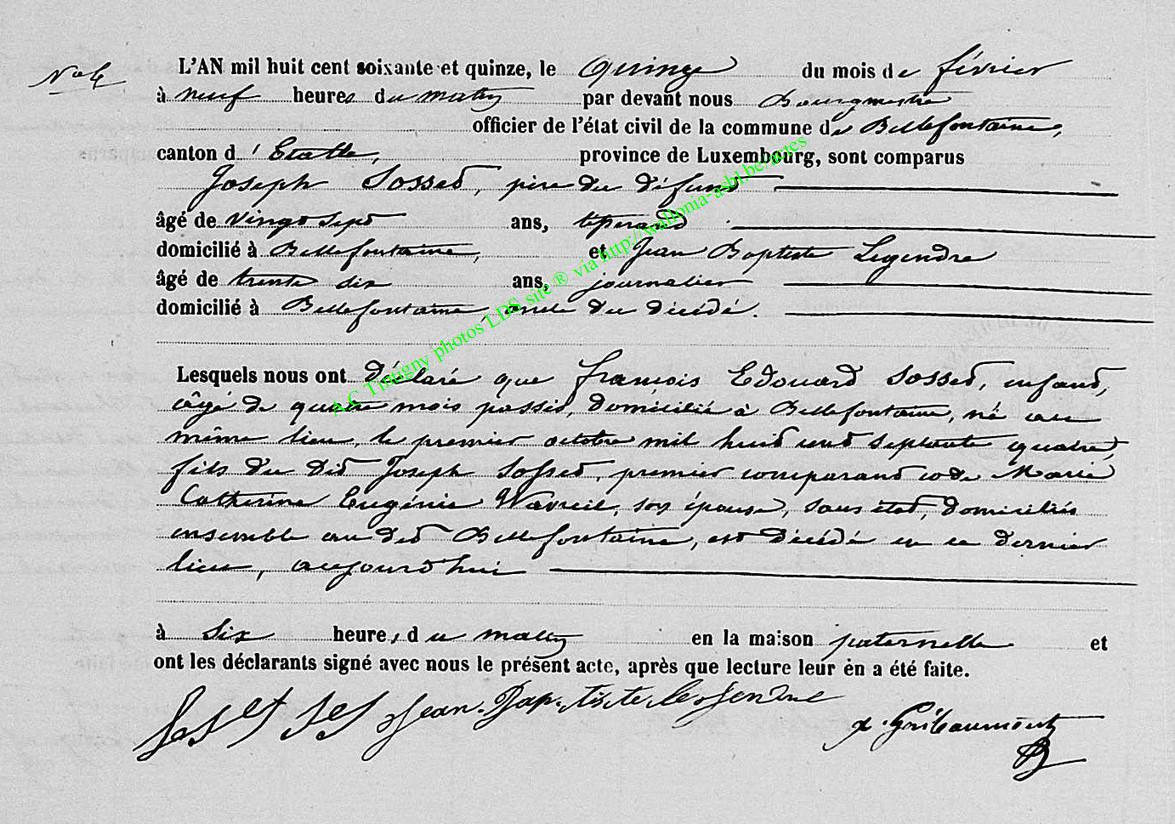 N° 4
L'AN mil huit cent soixante et quinze, le quinze du mois de février
à neuf heures du matin par devant nous Bourgmestre
officier de l'état civil de la commune de Bellefontaine,
canton d'Etalle, province de Luxembourg, sont comparus
Joseph Sosset, père du défunt
âgé de vingt sept ans,
domicilié à Bellefontaine, et Jean Baptiste Legendre
âgé de trente six ans, journalier
domicilié à Bellefontaine, oncle du décédé.
Lesquels nous ont déclaré que françois Edouard Sosset, enfant,
âgé de quatre mois passés, domicilié à Bellefontaine, né au
même lieu, le premier octobre mil huit cent septante quatre,
fils du dit Joseph Sosset, premier comparant et de Marie
Catherine Eugénie Wavreil, son épouse, sans état, domiciliés
ensemble au dit Bellefontaine, est décédé en ce dernier
lieu, aujourd'hui
à six heures du matin en la maison paternelle et
ont les déclarants signé avec nous le présent acte, après que lecture leur en a été faite.
Jean-Baptiste Legendre
Gribaumont
A.C Tintigny photos LDS site ® via http://wallonia-asbl.be/actes